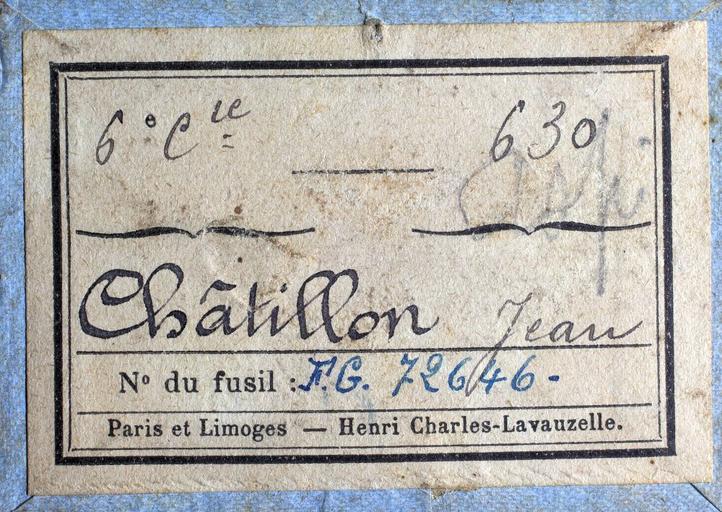 6e Cie 630
Châtillon Jean
No du fusil : F.G. 72646-
Paris et Limoges — Henri Charles-Lavauzelle.